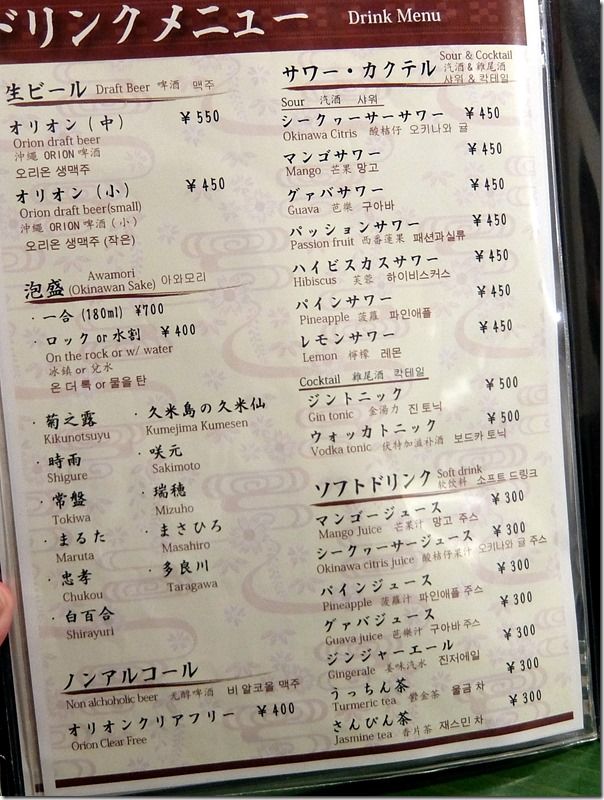 ドリンクメニュー Drink Menu
生ビール Draft Beer 啤酒 맥주
オリオン（中） ￥550
Orion draft beer
沖縄 ORION 啤酒
오리온 생맥주
オリオン（小） ￥450
Orion draft beer(small)
沖縄 ORION 啤酒（小）
오리온 생맥주 (작은)
泡盛 Awamori (Okinawan Sake) 아와모리
・一合 (180ml) ￥700
・ロック or 水割 ￥400
On the rock or w/ water
冰鎮 or 兌水
온 더 록 or 물을 탄
・菊之露
Kikunotsuyu
・久米島の久米仙
Kumejima Kumesen
・時雨
Shigure
・咲元
Sakimoto
・常盤
Tokiwa
・瑞穂
Mizuho
・まるた
Maruta
・まさひろ
Masahiro
・忠孝
Chukou
・多良川
Taragawa
・白百合
Shirayuri
ノンアルコール
Non alchoholic beer 无醇啤酒 비 알코올 맥주
オリオンクリアフリー ￥400
Orion Clear Free
サワー・カクテル Sour & Cocktail
汽酒 & 雞尾酒
샤워 & 칵테일
Sour 汽酒 샤워
シークヮーサーサワー ￥450
Okinawa Citris 酸桔仔 오키나와 귤
マンゴサワー ￥450
Mango 芒果 망고
グァバサワー ￥450
Guava 芭樂 구아바
パッションサワー ￥450
Passion fruit 西番蓮果 패션과실류
ハイビスカスサワー ￥450
Hibiscus 芙蓉 하이비스커스
パインサワー ￥450
Pineapple 菠蘿 파인애플
レモンサワー ￥450
Lemon 檸檬 레몬
Cocktail 雞尾酒 칵테일
ジントニック ￥500
Gin tonic 金湯力 진 토닉
ウォッカトニック ￥500
Vodka tonic 伏特加滋补酒 보드카 토닉
ソフトドリンク Soft drink
软饮料 소프트 드링크
マンゴージュース ￥300
Mango Juice 芒果汁 망고 주스
シークヮーサージュース ￥300
Okinawa citris juice 酸桔仔果汁 오키나와 귤 주스
パインジュース ￥300
Pineapple 菠蘿汁 파인애플 주스
グァバジュース ￥300
Guava juice 芭樂汁 구아바 주스
ジンジャーエール ￥300
Gingerale 姜味汽水 진저에일
うっちん茶 ￥300
Turmeric tea 鬱金茶 울금 차
さんぴん茶 ￥300
Jasmine tea 香片茶 재스민 차